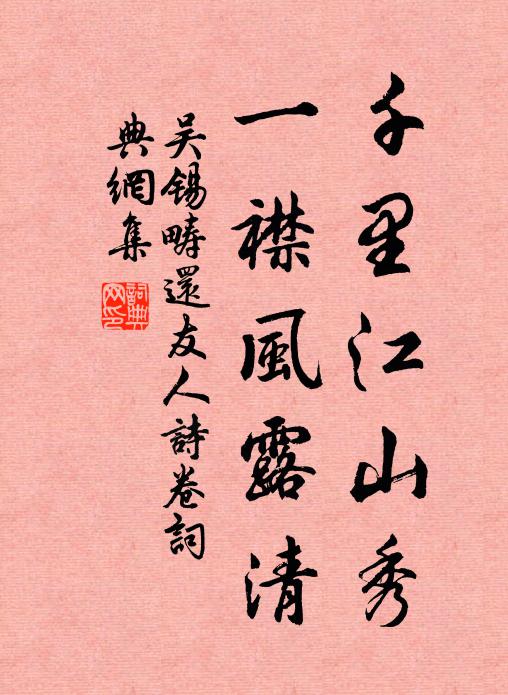 千里江山秀
一襟風露清
吳錫疇還友人詩卷詞
典網集
詞典網印